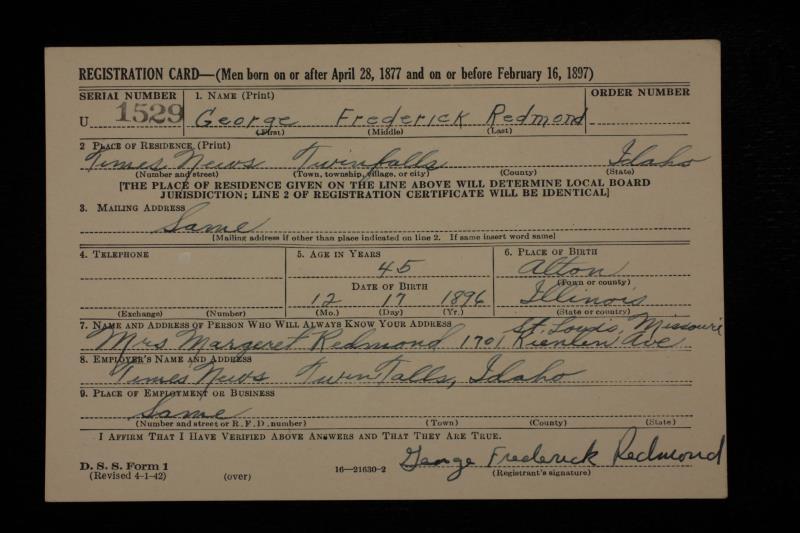 REGISTRATION CARD—(Men born on or after April 28, 1877 and on or before February 16, 1897)
SERIAL NUMBER 1. NAME (Print) ORDER NUMBER
U 1529 George Frederick Redmond
(First) (Middle) (Last)
2 PLACE OF RESIDENCE (Print)
Times News Twin falls Idaho
(Number and street) (Town, township, village, or city) (County) (State)
[THE PLACE OF RESIDENCE GIVEN ON THE LINE ABOVE WILL DETERMINE LOCAL BOARD
JURISDICTION; LINE 2 OF REGISTRATION CERTIFICATE WILL BE IDENTICAL]
3. MAILING ADDRESS
Same
[Mailing address if other than place indicated on line 2. If same insert word same]
4. TELEPHONE 5. AGE IN YEARS 6. PLACE OF BIRTH
45 Alton
DATE OF BIRTH (Town or county)
12 17 1896 Illinois
(Exchange) (Number) (Mo.) (Day) (Yr.) (State or country)
7. NAME AND ADDRESS OF PERSON WHO WILL ALWAYS KNOW YOUR ADDRESS St. Louis, Missouri
Mrs Margeret Redmond 1701 Kienlen Ave
8. EMPLOYER'S NAME AND ADDRESS
Times News Twin Falls, Idaho
9. PLACE OF EMPLOYMENT OR BUSINESS
Same
(Number and street or R. F. D. number) (Town) (County) (State)
I AFFIRM THAT I HAVE VERIFIED ABOVE ANSWERS AND THAT THEY ARE TRUE.
George Frederick Redmond
D. S. S. Form 1
(Revised 4-1-42) (over) 16—21630-2 (Registrant's signature)